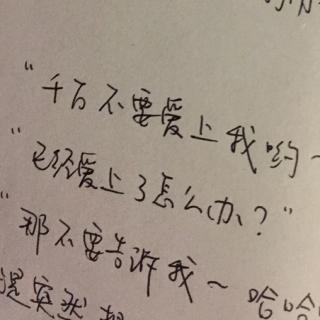 "千万不要爱上我哟~
"已经爱上了怎么办?"
"那不要告诉我~哈哈
突然